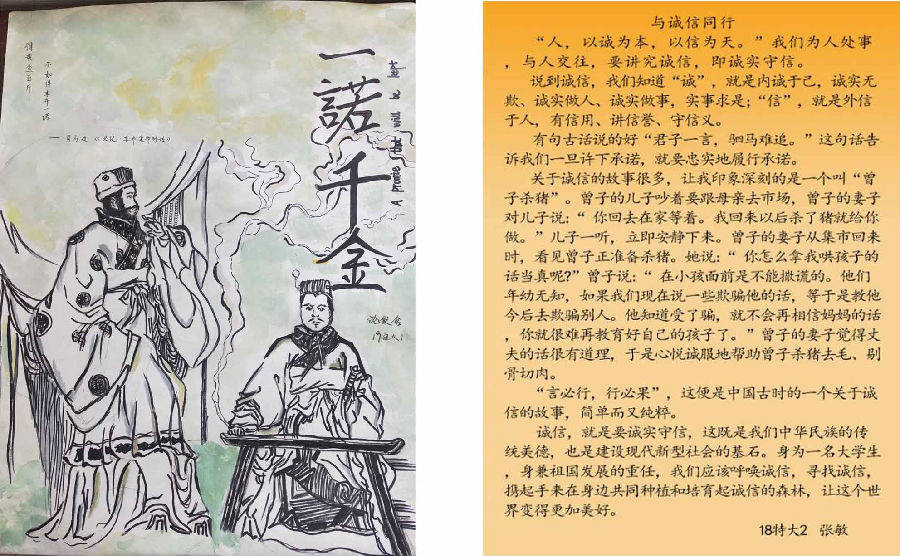 得黄金百斤
不如得季布一诺
一諾千金
A
與诚信同行
“人，以诚为本，以信为天。”我们为人处事
，与人交往，要讲究诚信，即诚实守信。
说到诚信，我们知道“诚”，就是内诚于己，诚实无
欺、诚实做人、诚实做事，实事求是；“信”，就是外信
于人，有信用、讲信誉、守信义。
有句古话说的好“君子一言，驷马难追。”这句话告
诉我们一旦许下承诺，就要忠实地履行承诺。
关于诚信的故事很多，让我印象深刻的是一个叫“曾
子杀猪”。曾子的儿子吵着要跟母亲去市场，曾子的妻子
对儿子说：“ 你回去在家等着。我回来以后杀了猪就给你
做。”儿子一听，立即安静下来。曾子的妻子从集市回来
时，看见曾子正准备杀猪。她说：“ 你怎么拿我哄孩子的
话当真呢?”曾子说：“ 在小孩面前是不能撒谎的。他们
年幼无知，如果我们现在说一些欺骗他的话，等于是教他
今后去欺骗别人。他知道受了骗，就不会再相信妈妈的话
，你就很难再教育好自己的孩子了。”曾子的妻子觉得丈
夫的话很有道理，于是心悦诚服地帮助曾子杀猪去毛、剔
骨切肉。
“言必行，行必果”，这便是中国古时的一个关于诚
信的故事，简单而又纯粹。
诚信，就是要诚实守信，这既是我们中华民族的传
统美德，也是建设现代新型社会的基石。身为一名大学生
，身兼祖国发展的重任，我们应该呼唤诚信，寻找诚信，
携起手来在身边共同种植和培育起诚信的森林，让这个世
界变得更加美好。
18特大2 张敏